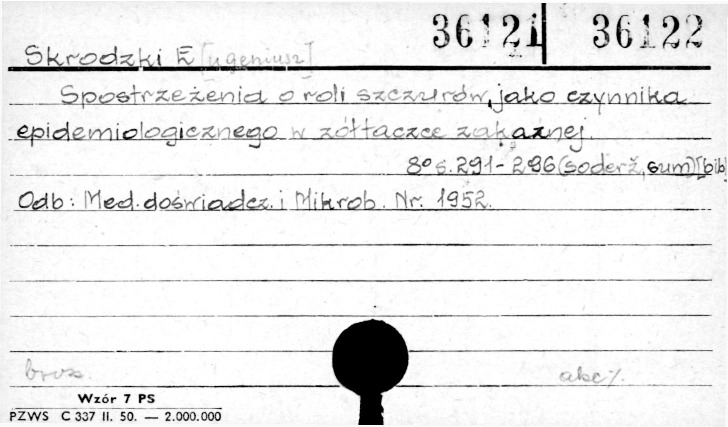 36121 36122
Skrodzki E [ugeniusz]
Spostrzeżenia o roli szczurów, jako czynnika
epidemiologicznego w żółtaczce zakaźnej.
8° s. 291-296 (soderž, sum) [bib
Odb: Med. doświadcz. i Mikrob. Nr. 1952.
brosz. akc%.
Wzór 7 PS
PZWS C 337 II. 50. — 2.000.000